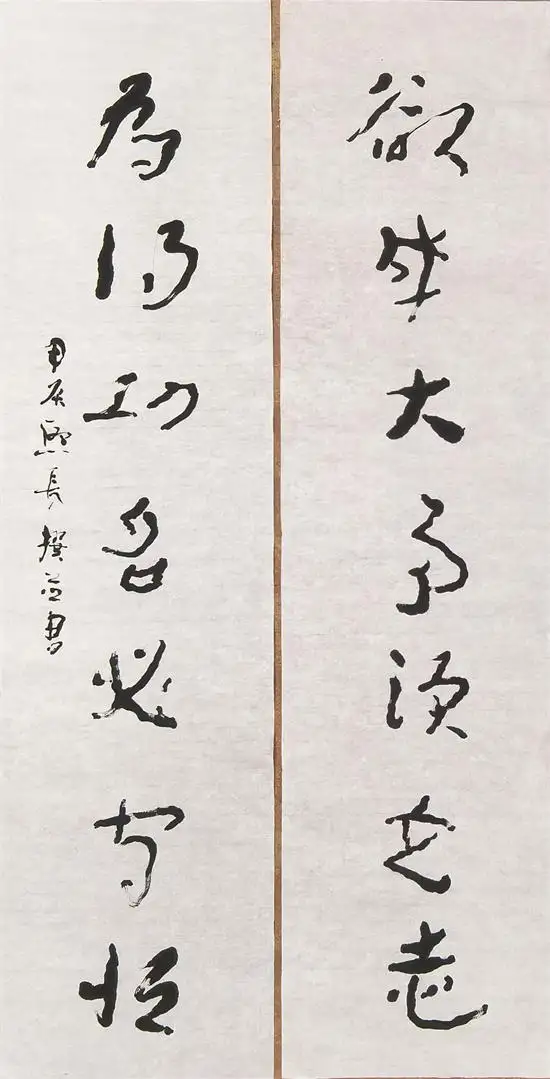 欲成大事須志
為得功名必守恒
甲辰熙長撰並書